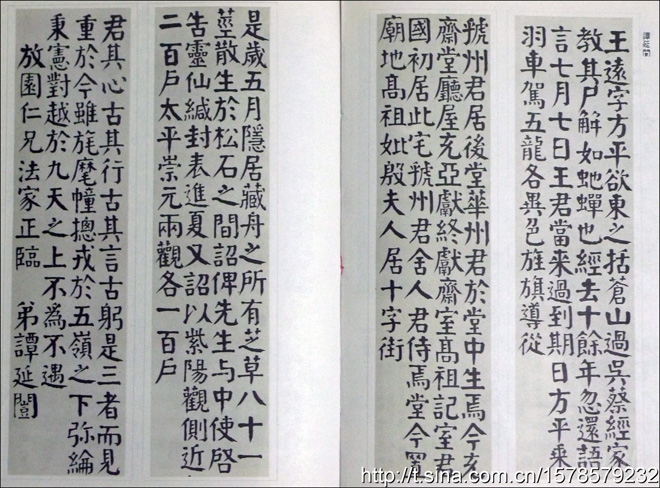 譚延闓
王遠字方平欲東之括蒼山過吳蔡經家
教其尸解如虵蟬也經去十餘年忽還語
言七月七日王君當来過到期日方平乘
羽車駕五龍各異色旌旗導從
虢州君居後堂華州君於堂中生焉今充
齋堂廳屋充亞獻終獻齋室高祖記室君
國初居此宅虢州君舍人君侍焉堂今置
廟地高祖妣殷夫人居十字街
是歲五月隱居藏舟之所有芝草八十一
莖散生於松石之間詔俾先生与中使啓
告靈仙緘封表進夏又詔以紫陽觀側近
二百戶太平崇元兩觀各一百戶
君其心古其行古其言古躬是三者而見
重於今雖旄麾幢摠戎於五嶺之下弥綸
秉憲對越於九天之上不為不遇
放園仁兄法家正臨 弟譚延闓
http://t.sina.com.cn/1578579232